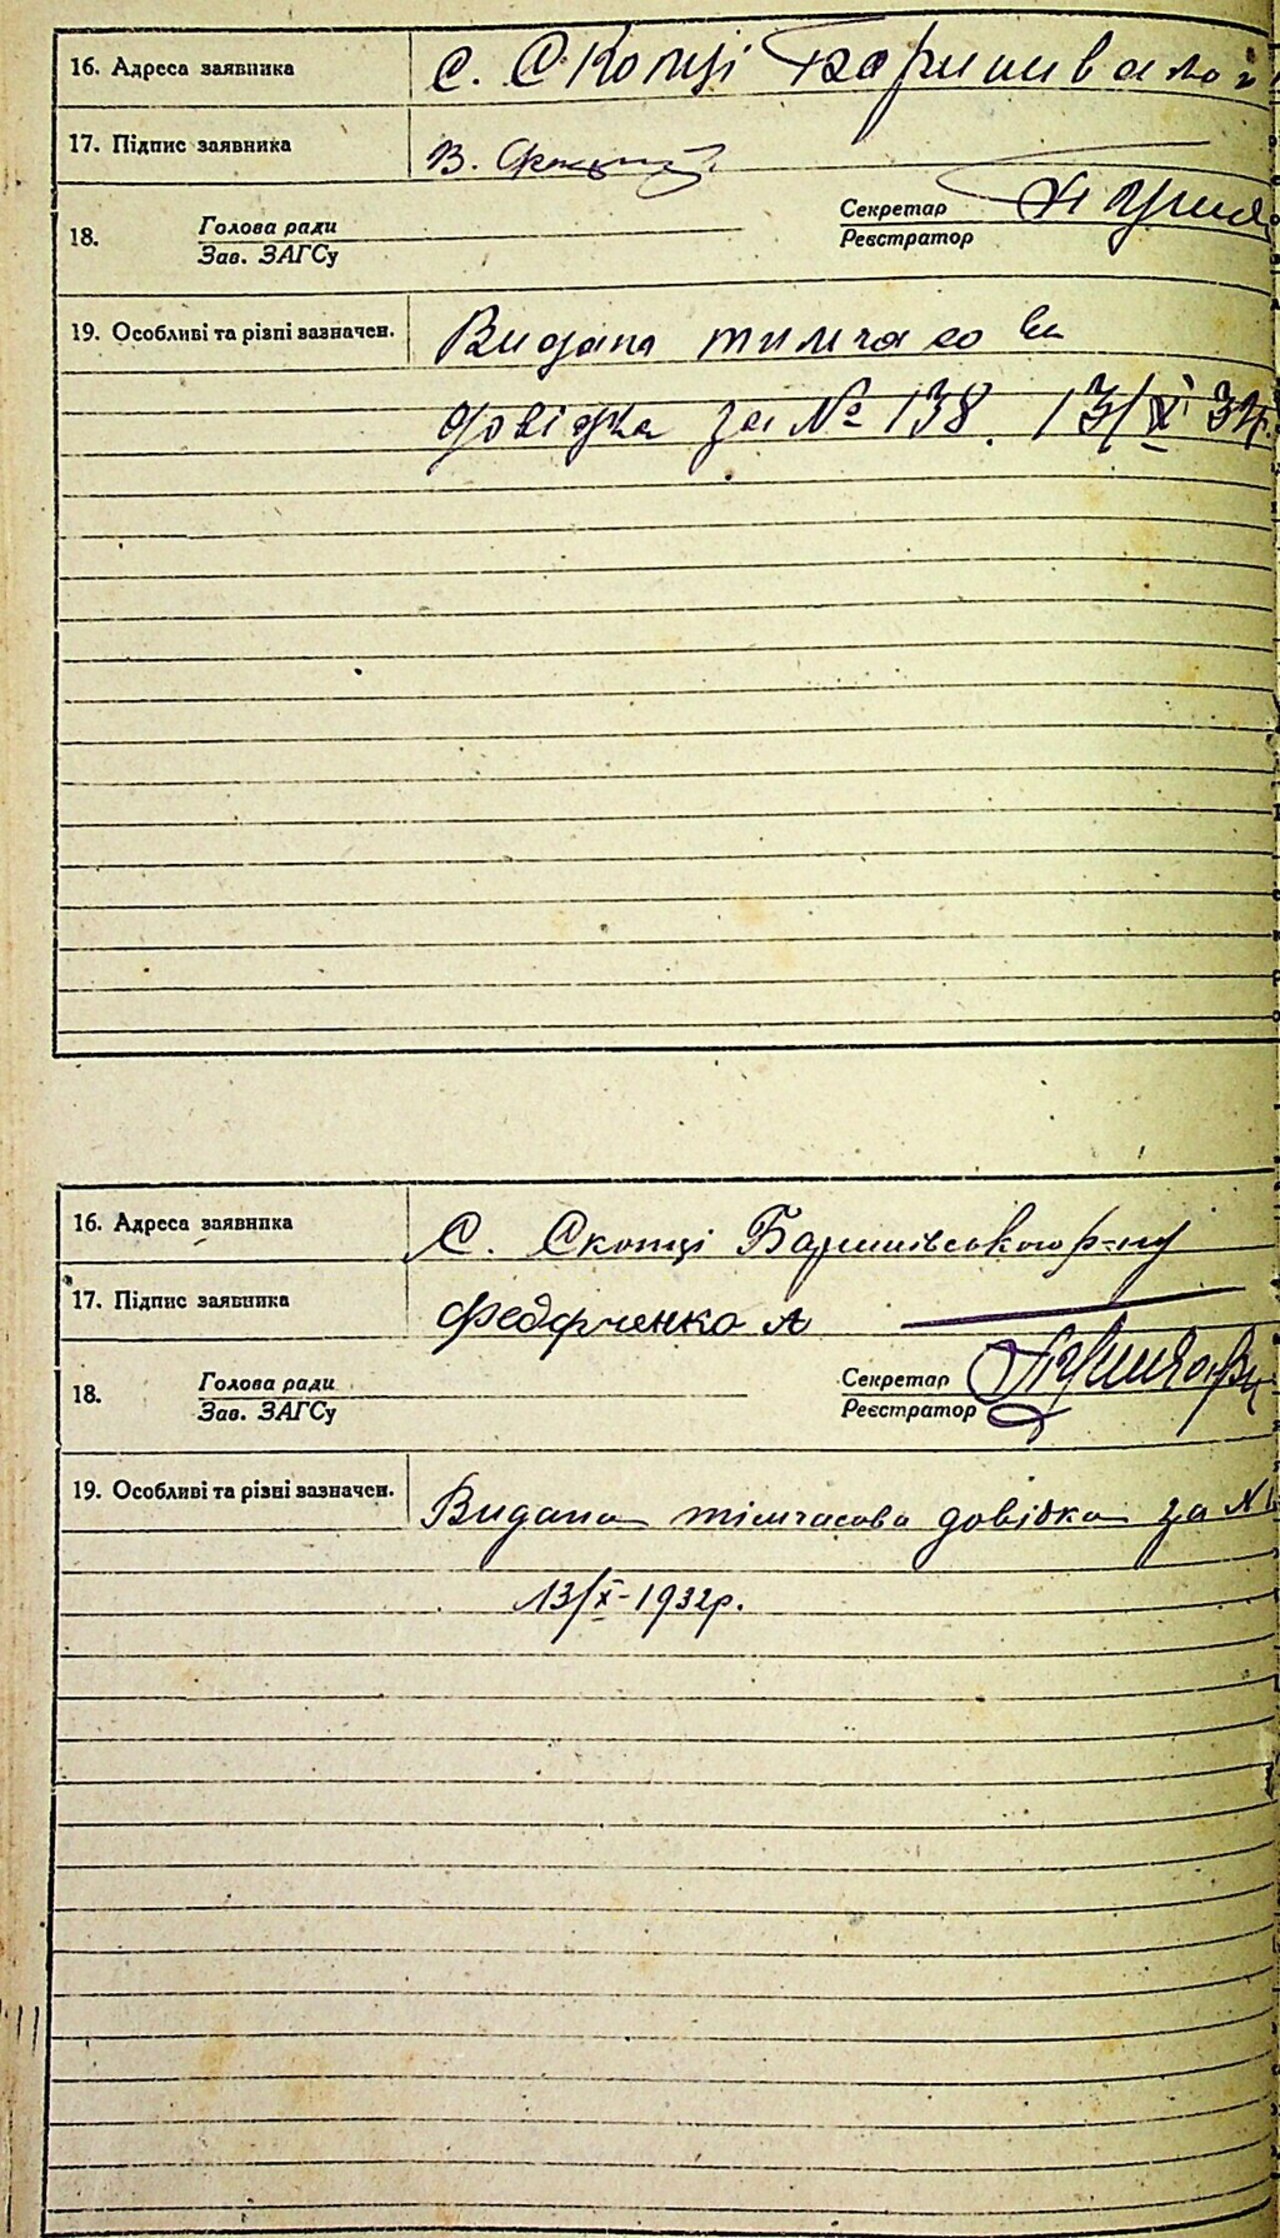 16. Адреса заявника С. Скопці Баришивсько
17. Підпис заявника В.
18. Голова ради Секретар
Зав. ЗАГСу Реєстратор
19. Особливі та різні зазначен. Видана тимчасова
довідка за № 138. 13/X
16. Адреса заявника С. Скопці Баришівського р-ну
17. Підпис заявника Федорченко А
18. Голова ради Секретар
Зав. ЗАГСу Реєстратор
19. Особливі та різні зазначен. Видана тімчасова довідка за №
13/X-1932р.